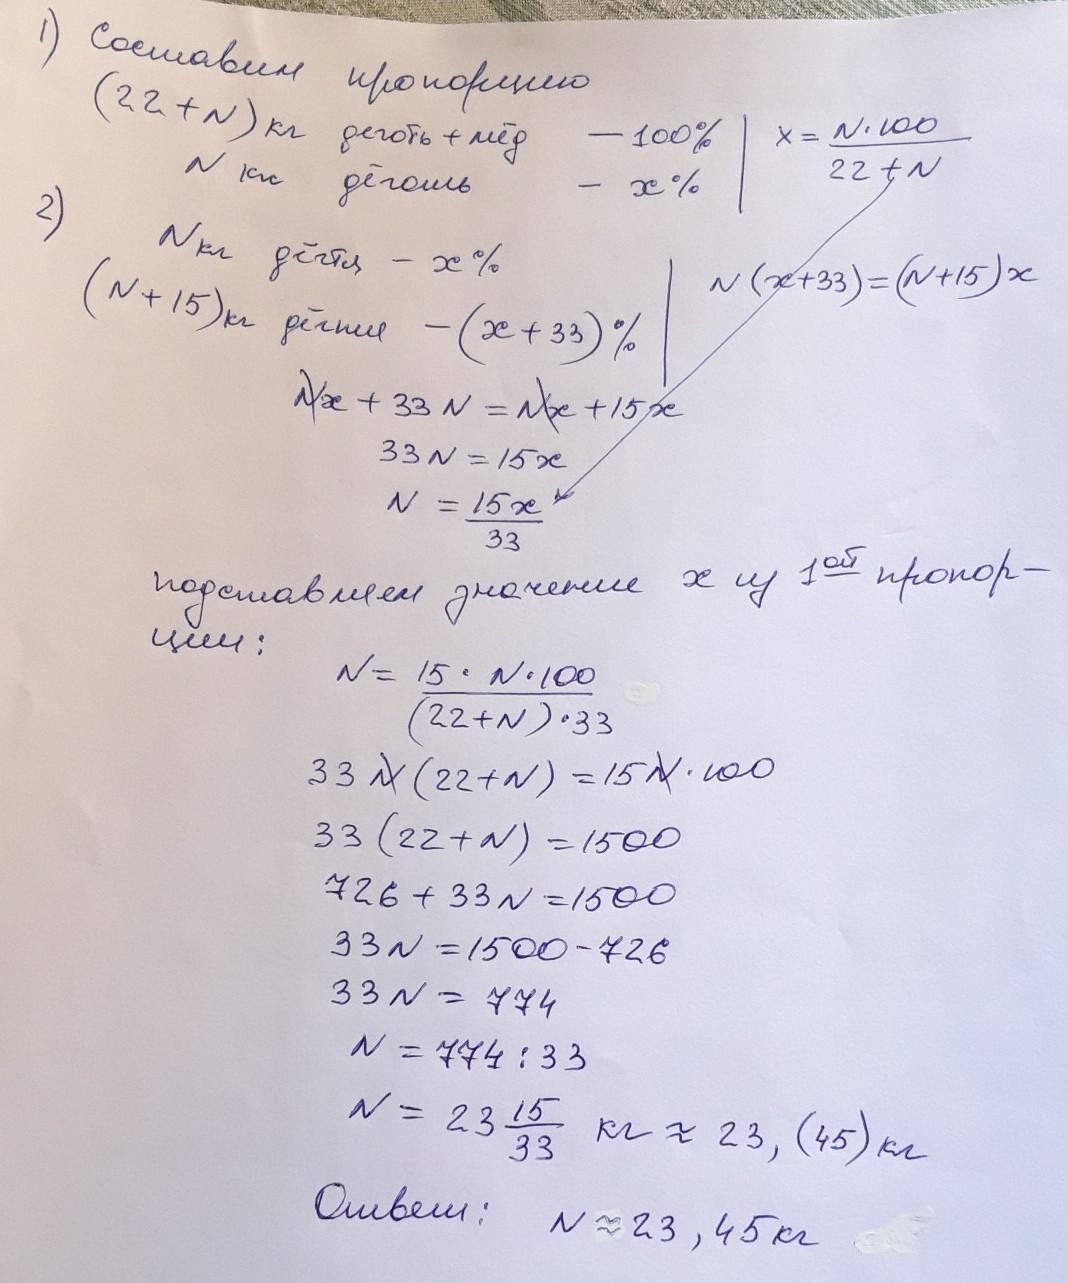 1) Составим пропорцию
(22+N) кг деготь + мёд — 100% | x = N·100 / 22+N
N кг дёготь – x%
2)
N кг дёгтя – x%
(N+15) кг дёгтя – (x+33)% | N(x+33)=(N+15)x
Nx + 33N = Nx + 15x
33N = 15x
N = 15x / 33
подставляем значение x из 1ой пропор-
ции:
N = 15·N·100 / (22+N)·33
33N(22+N) = 15N·100
33(22+N) = 1500
726 + 33N = 1500
33N = 1500 – 726
33N = 774
N = 774 : 33
N = 23 15/33 кг ≈ 23,(45) кг
Ответ: N ≈ 23,45 кг